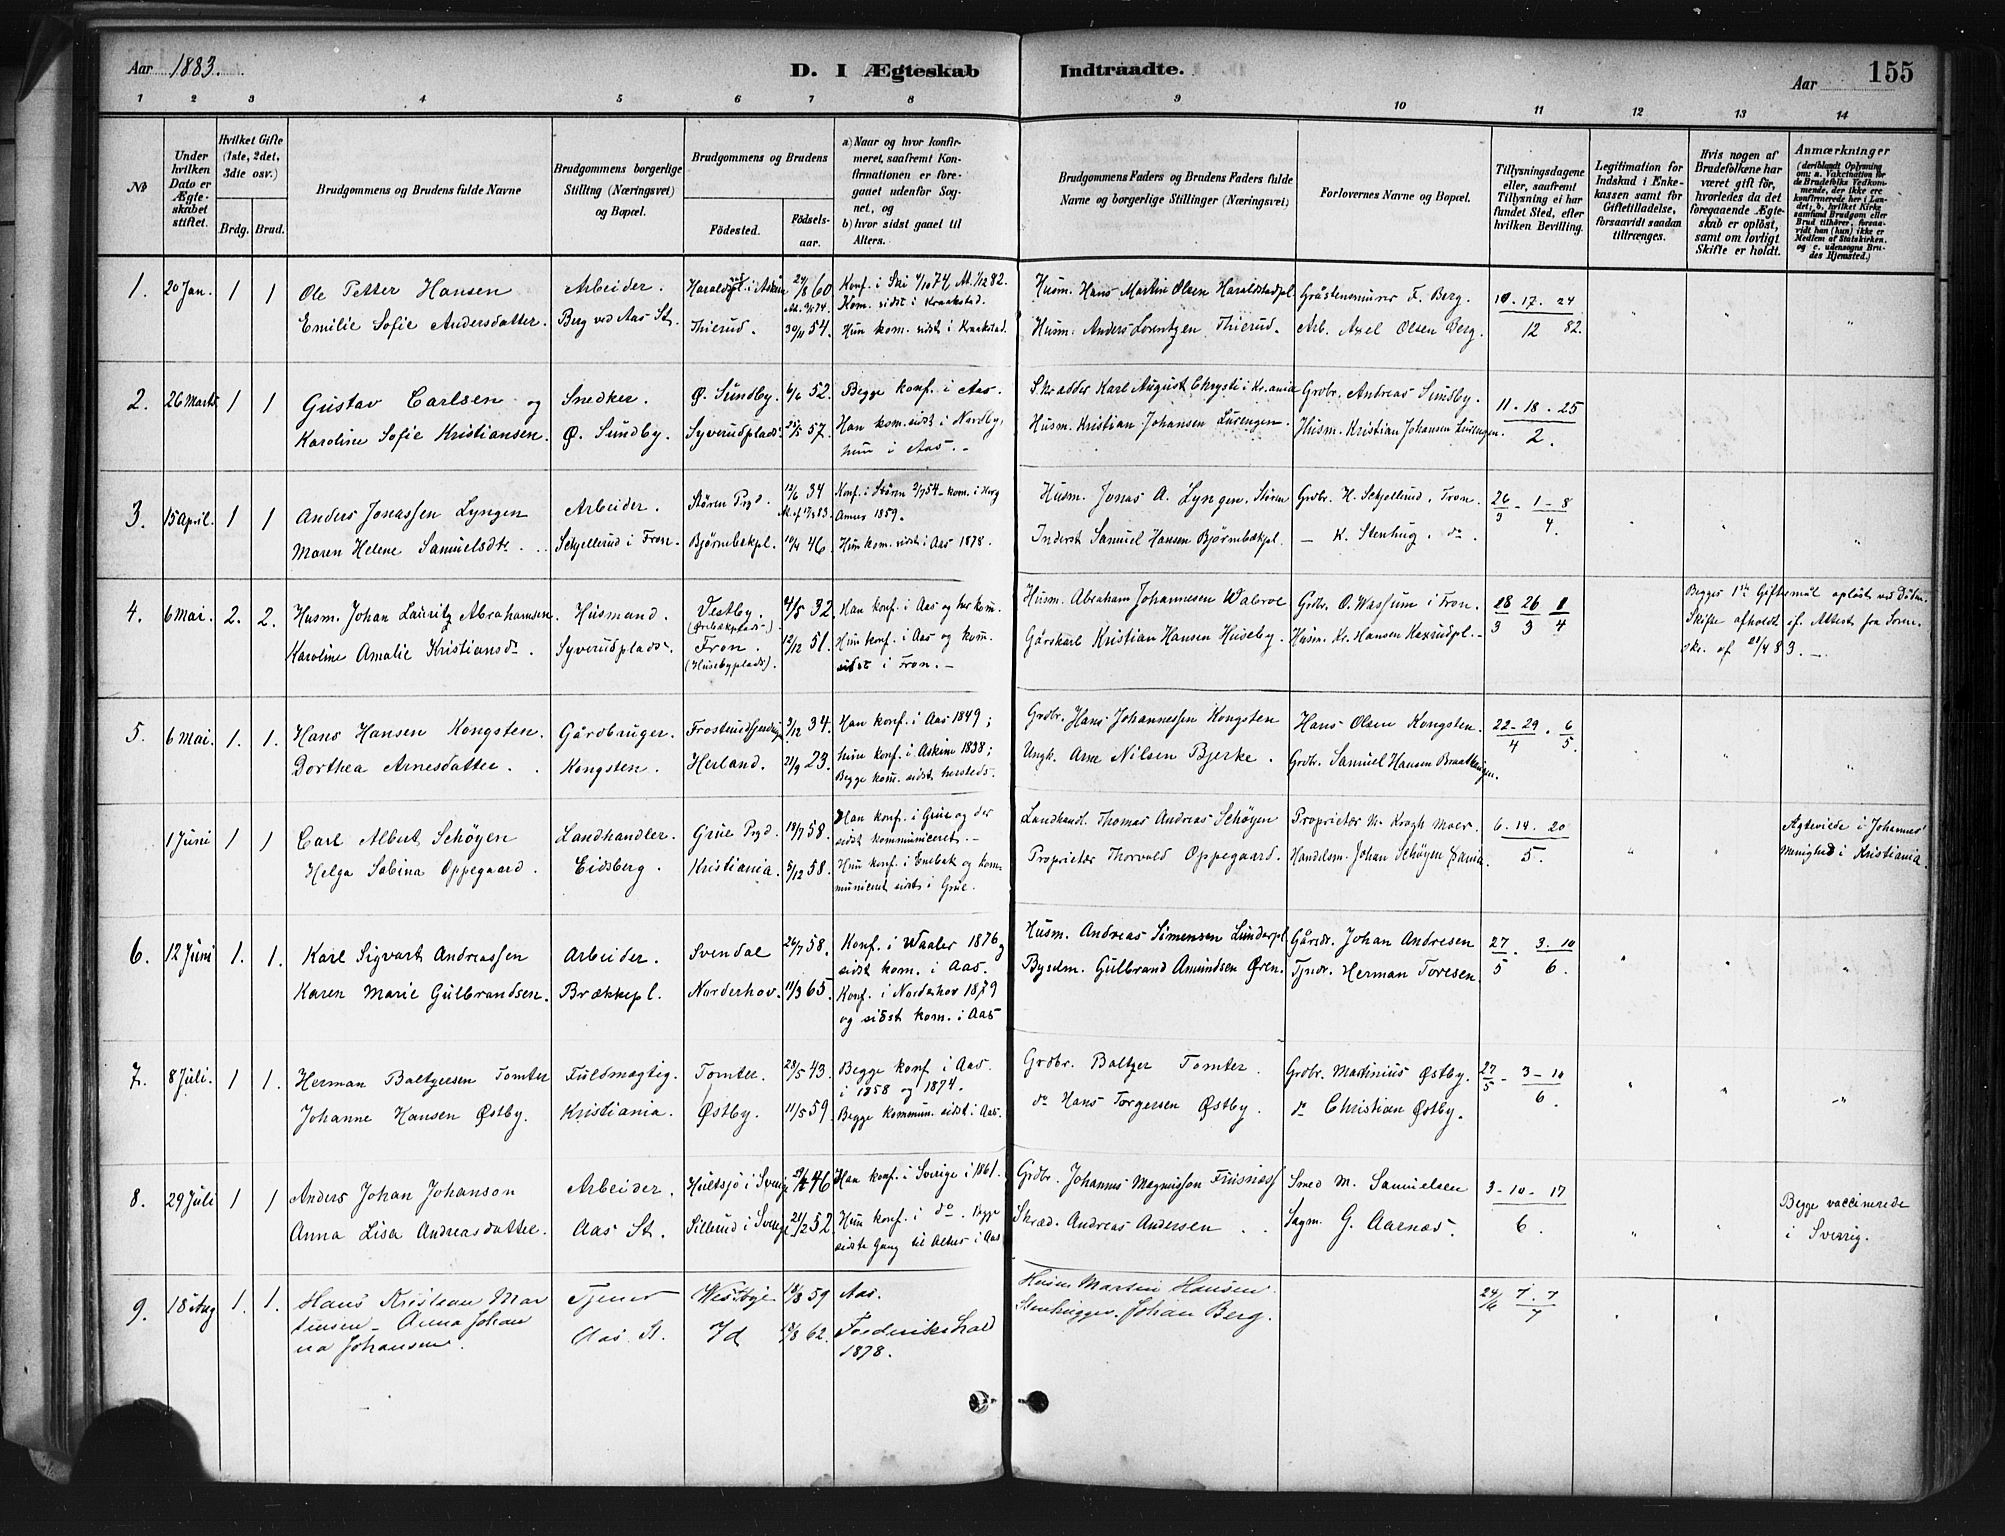 Aar 1883.
D. I Ægteskab Indtraadte.
Aar 155
1 2 3 4 5 6 7 8 9 10 11 12 13 14
No
Under hvilken Dato er Ægteskabet stiftet.
Hvilket Gifte (1ste, 2det, 3die osv.)
Brdg. Brud.
Brudgommens og Brudens fulde Navne
Brudgommens borgerlige Stilling (Næringsvei) og Bopæl.
Brudgommens og Brudens
Födested. Födselsaar.
a) Naar og hvor konfirmeret, saafremt Konfirmationen er foregaaet udenfor Sognet, og
b) hvor sidst gaaet til Alters.
Brudgommens Faders og Brudens Faders fulde Navne og borgerlige Stillinger (Næringsvei)
Forlovernes Navne og Bopæl.
Tillysningsdagene eller, saafremt Tillysning ei har fundet Sted, efter hvilken Bevilling.
Legitimation for Indskud i Enkekassen samt for Giftetilladelse, forsaavidt saadan tiltrænges.
Hvis nogen af Brudefolkene har været gift för, hvorledes da det foregaaende Ægteskab er oplöst, samt om lovligt Skifte er holdt.
Anmærkninger
(deriblandt Oplysning om: a. Vakcination for de Brudefolks Vedkommende, der ikke ere konfirmerede her i Landet; b. hvilket Kirkesamfund Brudgom eller Brud tilhörer, forsaavidt han (hun) ikke er Medlem af Statskirken, og c. udensogns Brudes Hjemsted.)
1. 20 Jan. 1 1
Ole Petter Hansen
Emilie Sofie Andersdatter.
Arbeider.
Berg ved Aas St.
Thierud.
24/8 60
30/11 54.
Konf. i Ski
Kom. sidst i Kraakstad.
Hun kom. sidst i Kraakstad.
Husm. Hans Martin Olsen Haraldstadpl.
Husm. Anders Lorentzen Thierud.
Gråstensmurer F. Berg.
Arb. Axel Olsen Berg.
10. 17. 24
12 82.
2. 26 Marts 1 1
Gustav Carlsen og
Karoline Sofie Kristiansen.
Snedker.
Ø. Sundby.
Ø. Sundby.
Syverudplads.
6/6 52.
25/5 57.
Begge konf. i Aas.
Han kom. sidst i Nordby,
hun i Aas.
Skrædder Karl August Chrysti i Kr.ania
Husm. Kristian Johansen Lurengen.
Grdbr. Andreas Sundby.
Husm. Kristian Johansen Lurengen.
11. 18. 25
2.
3. 15 April. 1 1
Anders Jonassen Lyngen
Maren Helene Samuelsdt.
Arbeider.
Schjellerud i Fron.
Støren Pgd.
Bjørnebekpl.
12/6 34
10/4 46.
Konf. i Støren 2/7 54 - kom. i Herg
1859.
Hun kom. sidst i Aas 1878.
Husm. Jonas A. Lyngen, Støren
Inderst Samuel Hansen Bjørnebækpl.
Grdbr. H. Schjellerud, Fron.
- K. Stenhug. do.
26/3 - 1 - 8
4.
4. 6 Mai. 2. 2.
Husm. Johan Lauritz Abrahamsen
Karoline Amalie Kristiansd.
Husmand.
Syverudplads.
Vestby.
Fron.
(Husebyplads).
4/5 32
12/12 51.
Han konf. i Aas og her kom.
Hun konf. i Aas og kom.
sidst i Fron.
Husm. Abraham Johannesen Walbroe
Gårskarl Kristian Hansen Huseby.
Grdbr. O. Wassum i Fron.
Husm. Kr. Hansen Kaxrudpl.
18/3 26/3 1/4
Begges 1ste Giftermål opløst ved Døden.
Skifte afholdt if. Attest fra Soren-
skr. af 21/4 83.
5. 6 Mai. 1. 1.
Hans Hansen Kongsten.
Dorthea Arnesdatter.
Gårdbruger.
Kongsten.
Herland.
3/12 34.
21/9 23.
Han konf. i Aas 1849;
hun konf. i Askim 1838;
Begge kom. sidst hersteds.
Grdbr. Hans Johannessen Kongsten
Ungk. Arne Nilsen Bjerke.
Hans Olsen Kongsten.
Grdbr. Samuel Hansen
22 - 29/4 . 6/5.
1 Juni 1 1
Carl Albert Schøyen
Helga Sabina Oppegaard.
Landhandler.
Eidsberg.
Grue Pgd.
Kristiania.
18/7 58.
5/12 58.
Han konf. i Grue og der
sidst kommuniceret.
Hun konf. i Enebak og kom-
municeret sidst i Grue.
Landhandl. Thomas Andreas Schøyen
Proprietær Thorvald Oppegaard.
Proprietær N. Krogh Moer.
Handelsm. Johan Schøyen Xania.
6. 14. 20
5.
Ægteviede i Johannes'
Menighed i Kristiania.
6. 12 Juni 1. 1.
Karl Sigvart Andreassen
Karen Marie Gulbrandsen.
Arbeider.
Brækkepl.
Svendal
Norderhov.
26/7 58.
11/3 65.
Konf. i Waaler 1876 og
sidst kom. i Aas.
Konf. i Norderhov 1879
og sidst kom. i Aas
Husm. Andreas Simensen Lunderpl
Bysdm. Gulbrand Amundsen Øren.
Gårdbr. Johan Andresen
Tjndr. Herman Toresen.
27/5 . 3. 10
6.
7. 8 Juli. 1 1.
Herman Baltzersen Tomter
Johanne Hansen Østby.
Fuldmægtig.
Kristiania.
Tomter.
Østby.
28/5 43.
11/5 59.
Begge konf. i Aas.
i 1858 og 1874.
Begge kommun. sidst i Aas.
Grdbr. Baltzer Tomter.
do Hans Torgersen Østby.
Grdbr. Martinius Østby.
do Christian Østby.
27/5 - 3 - 10
6.
8. 29 Juli 1 1
Anders Johan Johanson
Anna Lisa Andreasdatter.
Arbeider.
Aas St.
Hultsjø i Sverige
Sillerud i Sverige
46
21/2 52
Han konf. i Sverige i 1861.
Hun konf. i do. Begge
sidste Gang til Alters i Aas
Grdbr. Johannes Magnusson
Skræd. Andreas Andersen
Smed M. Samuelsen
Sagm. G. Aarnæs.
3 - 10 - 17
6.
Begge vaccinerede
i Sverrig.
9. 18 Aug 1. 1.
Hans Kristian Mar
tinsen - Anna Johan
na Johansen.
Tjener
Aas St.
Westbye
Id
10/8 59
12/8 62.
Aas.
Frederikshald
1878.
Husm Martin Hansen.
Stenhugger Johan Berg.
24/6 7. 7
7